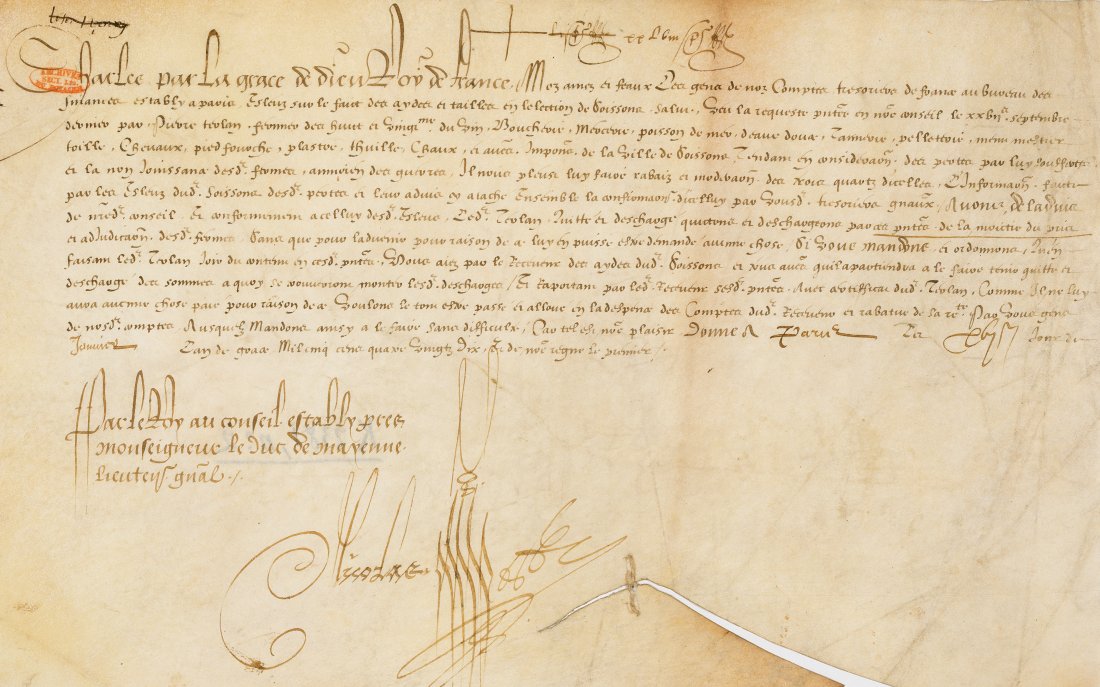 Charles par la grace de dieu Roy de france, Noz amez et feaux Les gens de noz Comptes tresoriers de france au bureau des
finances estably a paris Esleuz sur le faict des aydes et tailles en lelection de Soissons, Salut, Veu la requeste pntee en nre conseil le septembre
dernier par Pierre Teolan, fermier des huict et Vingtme du Vin, Boucherie, Mercerie, poisson de mer, deaue doulce, Tannerie, pelletterie, menu mestier
toille, Chevaux, pied fourche, plastre, thuille, Chaux, et auters Impons de la Ville de Soissons, Tendant en consideraon des pertes par luy souffertes
et la non Jouissance desd fermes, advenues des guerres, Il nous pleust luy faire rabaiz et moderaon des trois quartz dicelles, Linformaon faicte
par les Esleuz dud Soissons desd pertes et leur advis cy atache Ensemble la dicelluy par Vousd tresoriers gnaux, Avons, de ladvis
de nred conseil, Et conformement a celluy desd Esleuz, Led Teolan, quitte et descharge quictons et deschargeons par ces pntes, de la moictie du pris
et adjudicaon, desd fermes, Sans que pour ladvenir pour raison de ce luy en puisse estre demande aucune chose, Si Vous mandons, et ordonnons, quen
faisant led Teolan Joir du contenu en cesd pntes, Vous aiez par le Receveur des aydes dud Soissons et tous autres quil apartiendra a le faire tenir quitte et
descharge des sommes a quoy se trouveront monter lesd descharges, Et raportant par led Receveur cesd pntes, Avec certifficat dud Teolan, Comme Il ne luy
aura aucune chose paie pour raison de ce Voulons le tout estre passe et alloue en la despence des Comptes dud Receveur et rabatue de sa rte Par Vous gens
de nosd comptes Ausquelz Mandons ainsy a le faire sans difficulte, Car tel est nre plaisir Donne A Paris Le jour de
Janvier Lan de grace Mil cinq cens quatre Vingtz Dix, Et de nre regne le premier
Par le Roy au conseil estably prez
monseigneur le Duc de mayenne
lieuten gnal
Nicolas